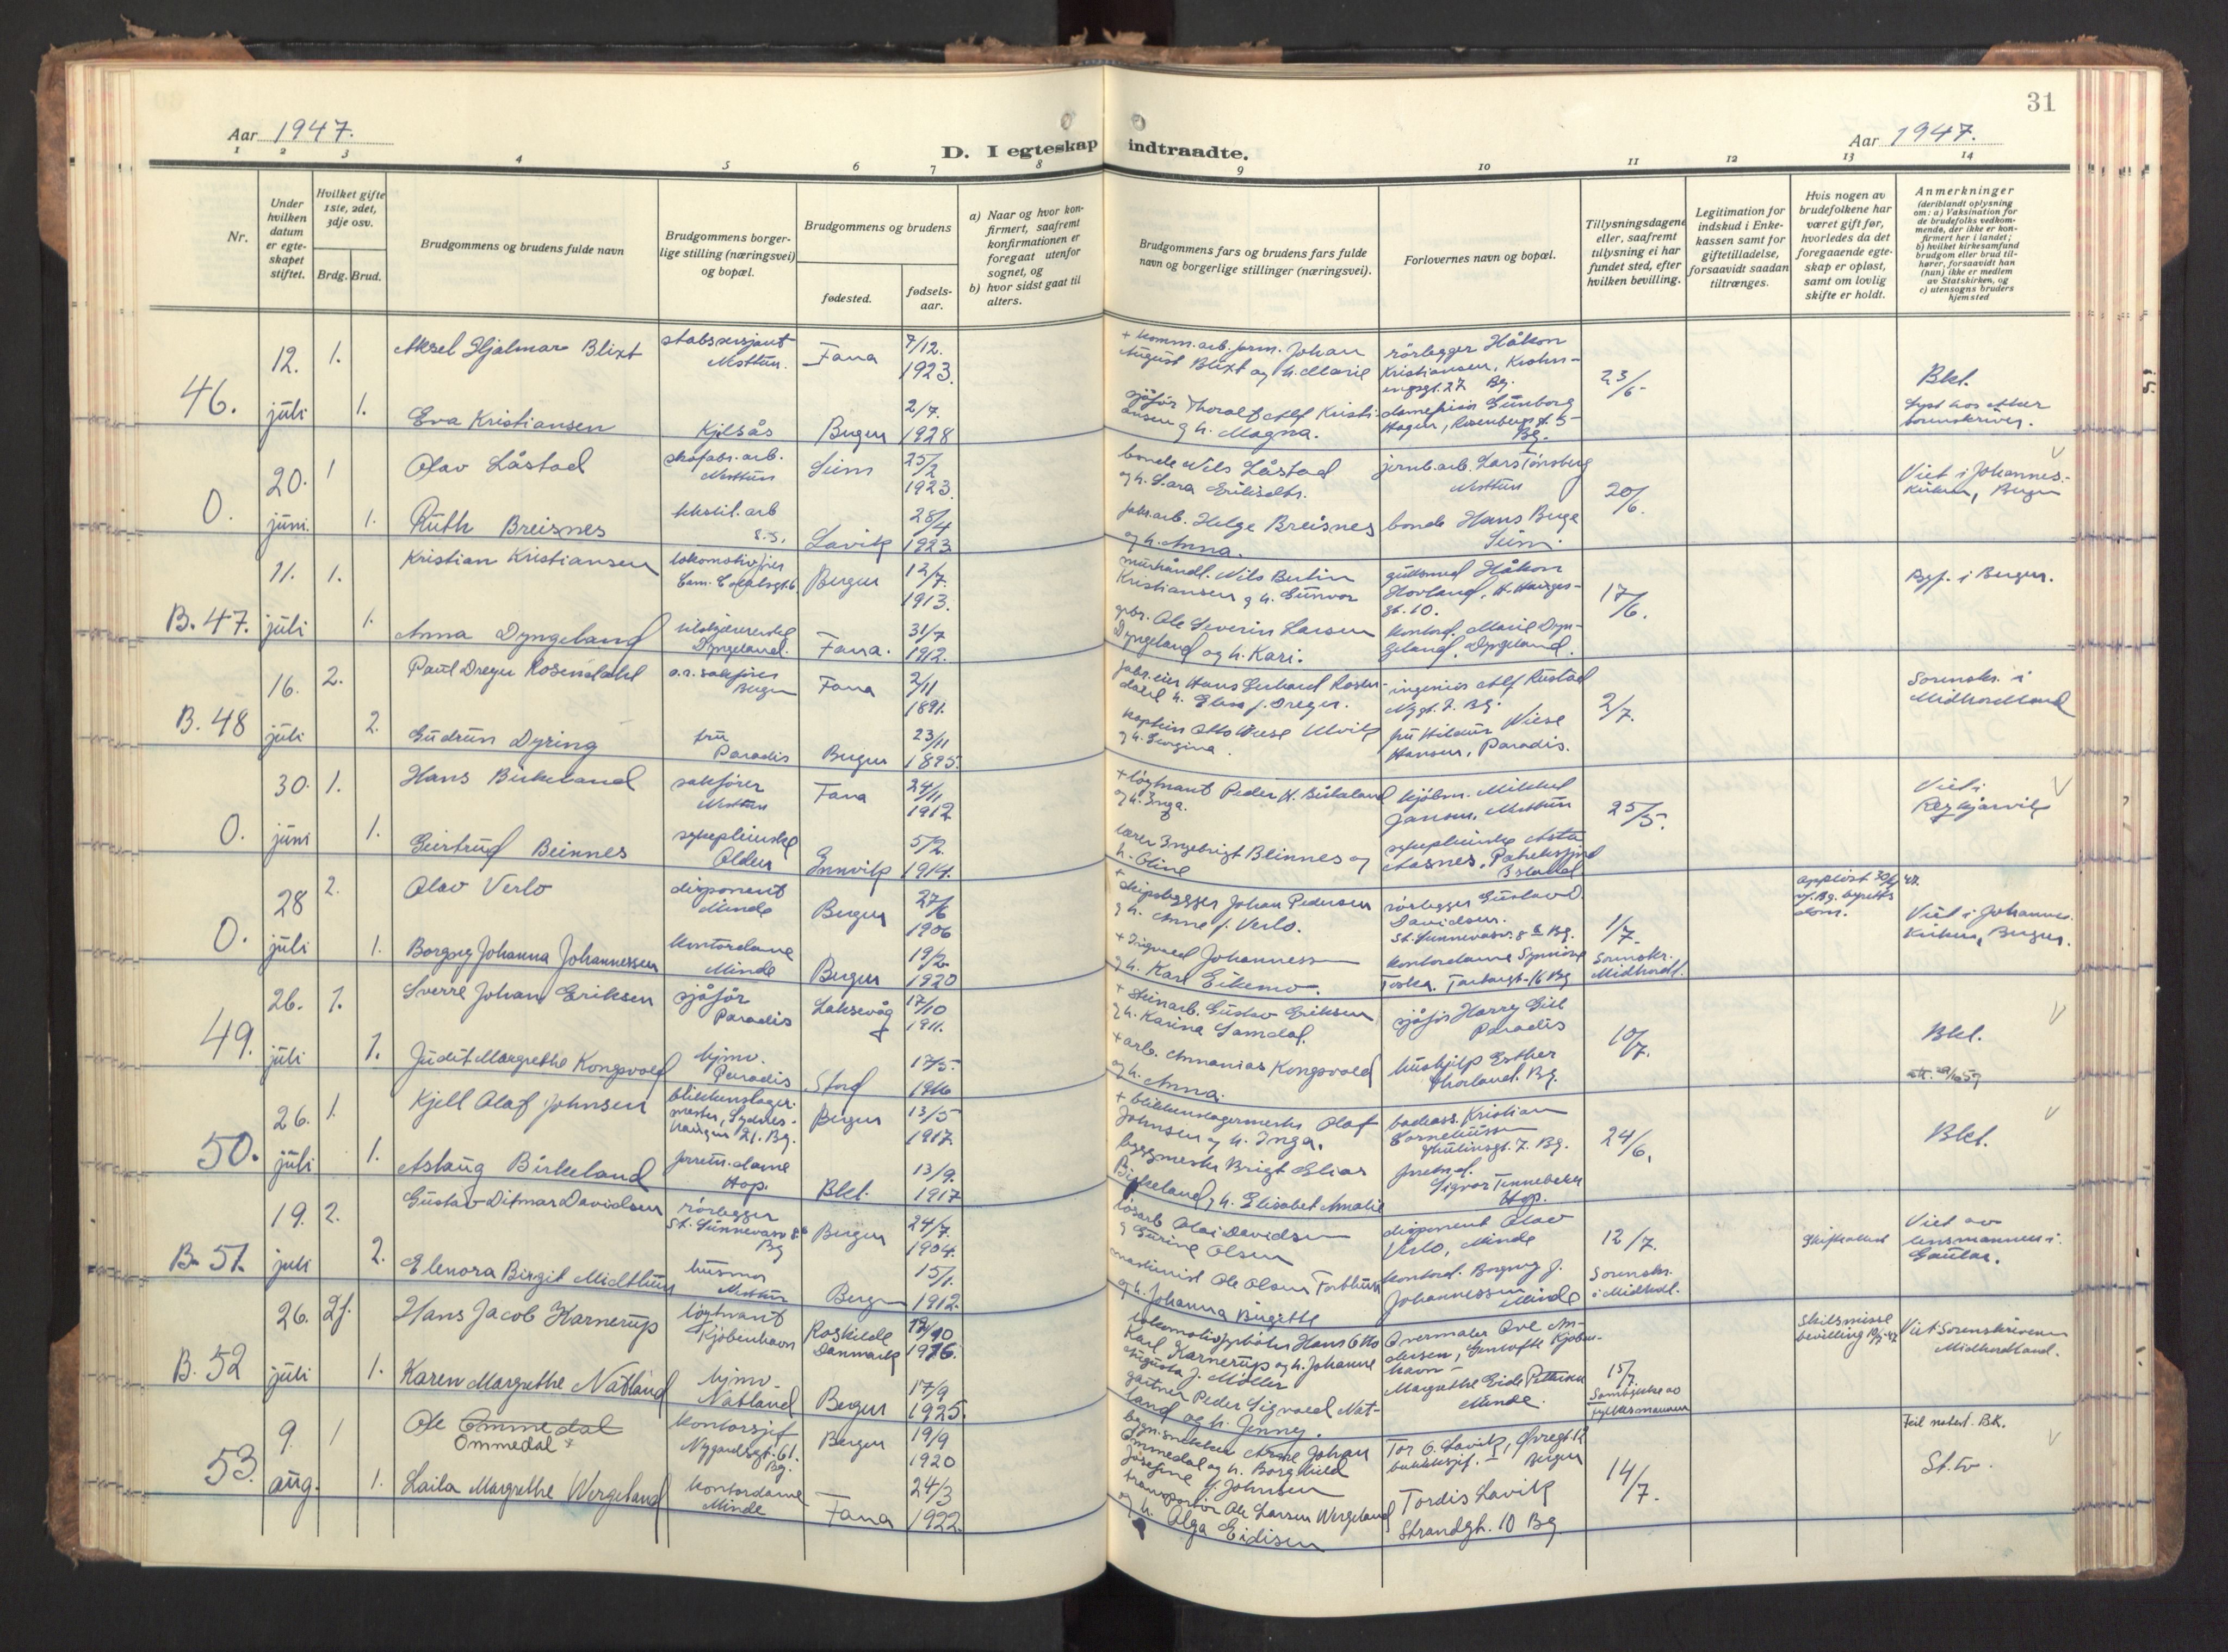 31
Aar 1947.
D. I egteskap indtraadte.
Aar 1947.
1 2 3 4 5 6 7 8 9 10 11 12 13 14
Nr.
Under
hvilken
datum
er egte-
skapet
stiftet.
Hvilket gifte
1ste, 2det,
3dje osv.
Brdg. Brud.
Brudgommens og brudens fulde navn
Brudgommens borger-
lige stilling (næringsvei)
og bopæl.
Brudgommens og brudens
fødested.
fødsels-
aar.
a) Naar og hvor kon-
firmert, saafremt
konfirmationen er
foregaat utenfor
sognet, og
b) hvor sidst gaat til
alters.
Brudgommens fars og brudens fars fulde
navn og borgerlige stillinger (næringsvei).
Forlovernes navn og bopæl.
Tillysningsdagene
eller, saafremt
tillysning ei har
fundet sted, efter
hvilken bevilling.
Legitimation for
indskud i Enke-
kassen samt for
giftetilladelse,
forsaavidt saadan
tiltrænges.
Hvis nogen av
brudefolkene har
været gift før,
hvorledes da det
foregaaende egte-
skap er opløst,
samt om lovlig
skifte er holdt.
Anmerkninger
(deriblandt oplysning
om: a) Vaksination for
de brudefolks vedkom-
mende, der ikke er kon-
firmert her i landet;
b) hvilket kirkesamfund
brudgom eller brud til-
hører, forsaavidt han
(hun) ikke er medlem
av Statskirken, og
c) utensogns bruders
hjemsted
46.
12. juli
1.
Aksel Hjalmar Blixt
stabssersjant
Nesttun.
Fana
7/12. 1923.
+ komm.arb.form. Johan
August Blixt og h. Marie
rörlegger Håkon
Kristiansen, Krohn-
engsgt. 27 Bg.
23/6.
Bkl.
1.
Eva Kristiansen
Kjelsås
Bergen
2/7. 1928
sjåför Thoralf Alf Kristi-
ansen og h. Magna.
Hagen, Rosenbergsgt. 5
Bg.
Lyst hos
sorenskriver.
0.
20. juni.
1
Olav Låstad
skofabr.arb.
Nesttun
Seim
25/2 1923.
bonde Nils Låstad
og h. Lara Eriksdtr.
jernb.arb. Lars Tönsberg
Nesttun
20/6.
Viet i Johannes-
kirken, Bergen
1.
Ruth Breisnes
tekstil.arb
s.s.
Lavik
28/4 1923.
fabr.arb. Helge Breisnes
og h. Anna.
bonde Hans Berge
Seim.
B. 47.
11. juli
1.
Kristian Kristiansen
Bergen
12/7. 1913.
Nils Bertin
Kristiansen og h. Gunvor
gullsmed Håkon
Hovland, H. Hauges-
gt. 10.
17/6.
Bgf. i Bergen.
1.
Anna Dyngeland
Dyngeland.
Fana.
31/7 1912.
gbr. Ole Severin Larsen
Dyngeland og h. Kari.
kontord. Marie Dyn-
geland, Dyngeland.
B. 48
16. juli
2.
Paul Dreyer Rosendahl
o.r. sakförer
Bergen
Fana
2/11 1891.
fabr.eier Hans Gerhard Rosen-
dahl h. Elen f. Dreyer.
ingeniör Alf Rustad
Nygt. 7. Bg.
2/7.
Sorenskr. i
Midhordland
2.
Gudrun Dyring
fru
Paradis
Bergen
23/11 1895.
kaptein Otto Wiese Ulvik
og h. Georgina.
fru Hildur Wiese
Hansen, Paradis.
0.
30. juni
1.
Hans Birkeland
sakförer
Nesttun
Fana
24/11 1912
+ löytnant Peder H. Birkeland
og h. Inga.
kjöbm. Mikkel
Jansen, Nesttun
25/5.
Viet i
Reykjavik
1.
Geirtrud Beinnes
sykepleierske
Olden
Innvik
5/2. 1914.
lærer Ingebrigt Beinnes og
h. Oline
sykepleierske Asta
Aasnes, Patreksfjord
Island
0.
28 juli
2.
Olav Verlo
disponent
Minde
Bergen
27/6 1906
+ skipsbygger Johan Pedersen
og h. Anne f. Verlo.
rörlegger Gustav D.
Davidsen.
St. Sunnevasv. 8 b Bg.
1/7.
Viet i Johannes-
kirken, Bergen.
1.
Borgny Johanna Johannessen
kontordame
Minde
Bergen
19/2. 1920
+ Ingvald Johannessen
og h. Kari Eikemo.
kontordame Synnöve
Sorenskr.
Midhordl.
49.
26. juli
1.
Sverre Johan Eriksen
sjåför
Paradis
Laksevåg
17/10 1911.
+ steinarb. Gustav Eriksen
og h. Karina Samdal.
sjåför Harry Gill
Paradis
10/7.
Bkl.
1.
Judit Margrethe Kongsvold
hjmv.
Paradis
Stord
13/5. 1916
+ arb. Annanias Kongsvold
og h. Anna.
hushjelp Esther
Hovland. Bg.
50.
26. juli
1.
Kjell Olaf Johnsen
blikkenslager-
mester, Sydnes-
haugen 21. Bg.
Bergen
13/5 1917.
+ blikkenslagermester Olaf
Johnsen og h. Inga.
badeass. Kristian
Corneliussen
24/6.
Bkl.
1.
Aslaug Birkeland
forretn.dame
Hop.
Bkl.
13/9. 1917
byggmester Brigt Elias
Birkeland og h. Elisabet Amalie
Sigvor Tennebekk
Hop.
B. 51.
19. juli
2.
Gustav Ditmar Davidsen
rörlegger
St. Sunnevasv 8 b
Bg
Bergen
24/7. 1904.
lösarb Olai Davidsen
og Gurine Olsen
disponent Olav
Verlo, Minde
12/7.
Skifteattest
Viet av
lensmannen i
Gaular.
2.
Elenora Birgit Midtthun
husmor
Nesttun
Bergen
15/1. 1912.
maskinist Ole Olsen
og h. Johanna Birgitte
kontord. Borgny J.
Johannessen
Minde
Sorenskr.
i Midhdl.
B. 52
26. juli
2f.
Hans Jacob Karnerup
löytnant
Kjöbenhavn
Roskilde
Danmark
1916.
lokomotivfyrböter Hans Otto
Karl Karnerup og h. Johanne
Augusta f. Möller
Overmaler Ove An-
dersen, Gentofte Kjöben-
havn
15/7.
Skilsmisse
bevilling
Viet Sorenskriveren
Midhordland.
1.
Karen Margrethe Natland
hjmv.
Natland
Bergen
17/9 1925.
gartner Peder Sigvald Nat-
land og h. Jenny.
Margrethe Eide Pettersen
Minde.
Samtykke av
fylkesmannen
53.
9. aug.
1
Ole Ommedal
Ommedal
kontorsjef
Nygaardsgt. 61.
Bg.
Bergen
19/9 1920
bygn.snekker Arne Johan
Ommedal og h. Borghild
Josefine f. Johnsen
Tor G. Lavik, Övregt. 12
Bergen
14/7.
Feil notert. B.K.
St.tv.
1.
Laila Margrethe Wergeland
kontordame
Minde
Fana
24/3 1922.
transportör Ole Larsen Wergeland
og h. Olga Eidisen
Tordis Lavik
Strandgt. 10 Bg